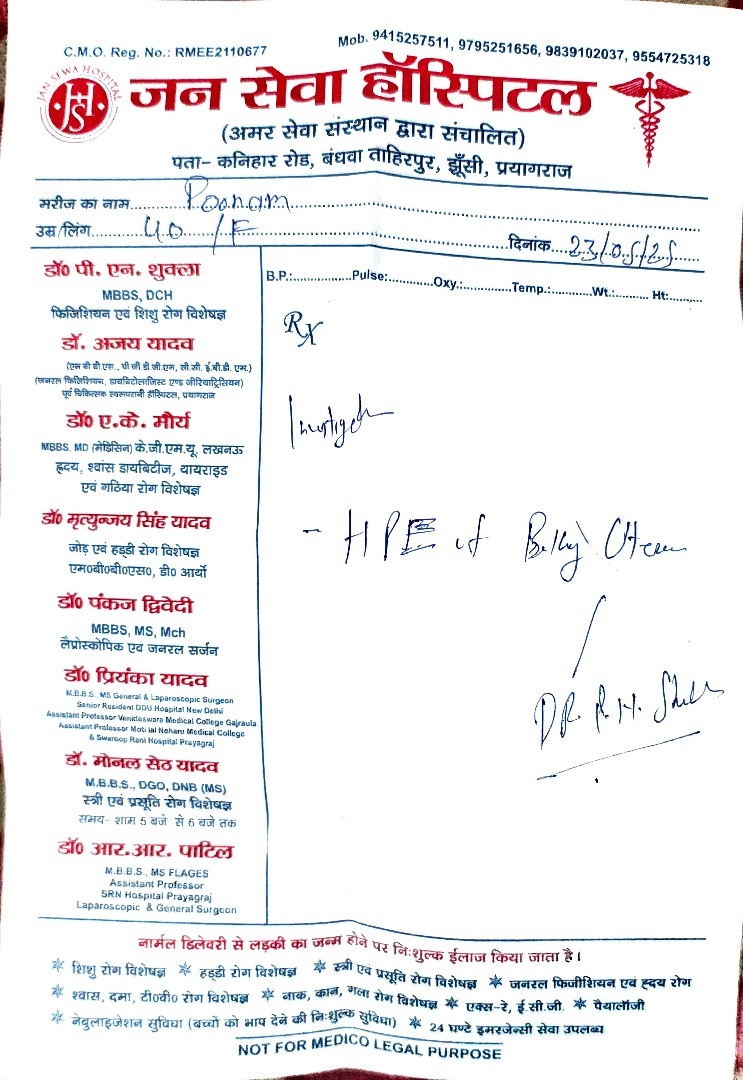 C.M.O. Reg. No.: RMEE2110677
Mob. 9415257511, 9795251656, 9839102037, 9554725318
JAN SEWA HOSPITAL
JHS
जन सेवा हॉस्पिटल
(अमर सेवा संस्थान द्वारा संचालित)
पता- कनिहार रोड, बंधवा ताहिरपुर, झूँसी, प्रयागराज
मरीज का नाम Poonam
उम्र/लिंग 40 / F
दिनांक 23/05/25
B.P.: Pulse: Oxy.: Temp.: Wt.: Ht:
डॉ० पी. एन. शुक्ला
MBBS, DCH
फिजिशियन एवं शिशु रोग विशेषज्ञ
डॉ. अजय यादव
(एम बी बी.एस., पी जी डी.जी.एम, सी.सी. ई.बी.डी. एम.)
(जनरल फिजिशियन, डायबिटोलाजिस्ट एण्ड जीरियाट्रिसियन)
पूर्व चिकित्सक स्वरूपरानी हॉस्पिटल, प्रयागराज
डॉ० ए.के. मौर्य
MBBS, MD (मेडिसिन) के.जी.एम.यू. लखनऊ
हृदय, श्वांस डायबिटीज, थायराइड
एवं गठिया रोग विशेषज्ञ
डॉ० मृत्युन्जय सिंह यादव
जोड़ एवं हड्डी रोग विशेषज्ञ
एम०बी०बी०एस०, डी० आर्थो
डॉ० पंकज द्विवेदी
MBBS, MS, Mch
लैप्रोस्कोपिक एवं जनरल सर्जन
डॉ० प्रियंका यादव
M.B.B.S., MS General & Laparoscopic Surgeon
Senior Resident DDU Hospital New Delhi
Assistant Professor Venkteswara Medical College Gajraula
Assistant Professor Moti lal Neharu Medical College
& Swaroop Rani Hospital Prayagraj
डॉ. मोनल सेठ यादव
M.B.B.S., DGO, DNB (MS)
स्त्री एवं प्रसूति रोग विशेषज्ञ
समय- शाम 5 बजे से 6 बजे तक
डॉ० आर.आर. पाटिल
M.B.B.S., MS FLAGES
Assistant Professor
SRN Hospital Prayagraj
Laparoscopic & General Surgeon
Rx
- HPE of Bulky
DR.
नार्मल डिलेवरी से लड़की का जन्म होने पर निःशुल्क ईलाज किया जाता है।
* शिशु रोग विशेषज्ञ * हड्डी रोग विशेषज्ञ * स्त्री एवं प्रसूति रोग विशेषज्ञ * जनरल फिजीशियन एवं ह्रदय रोग
* श्वास, दमा, टी०वी० रोग विशेषज्ञ * नाक, कान, गला रोग विशेषज्ञ * एक्स-रे, ई.सी.जी. * पैथालॉजी
* नेबुलाइजेशन सुविधा (बच्चों को भाप देने की निःशुल्क सुविधा) * 24 घण्टे इमरजेन्सी सेवा उपलब्ध
NOT FOR MEDICO LEGAL PURPOSE